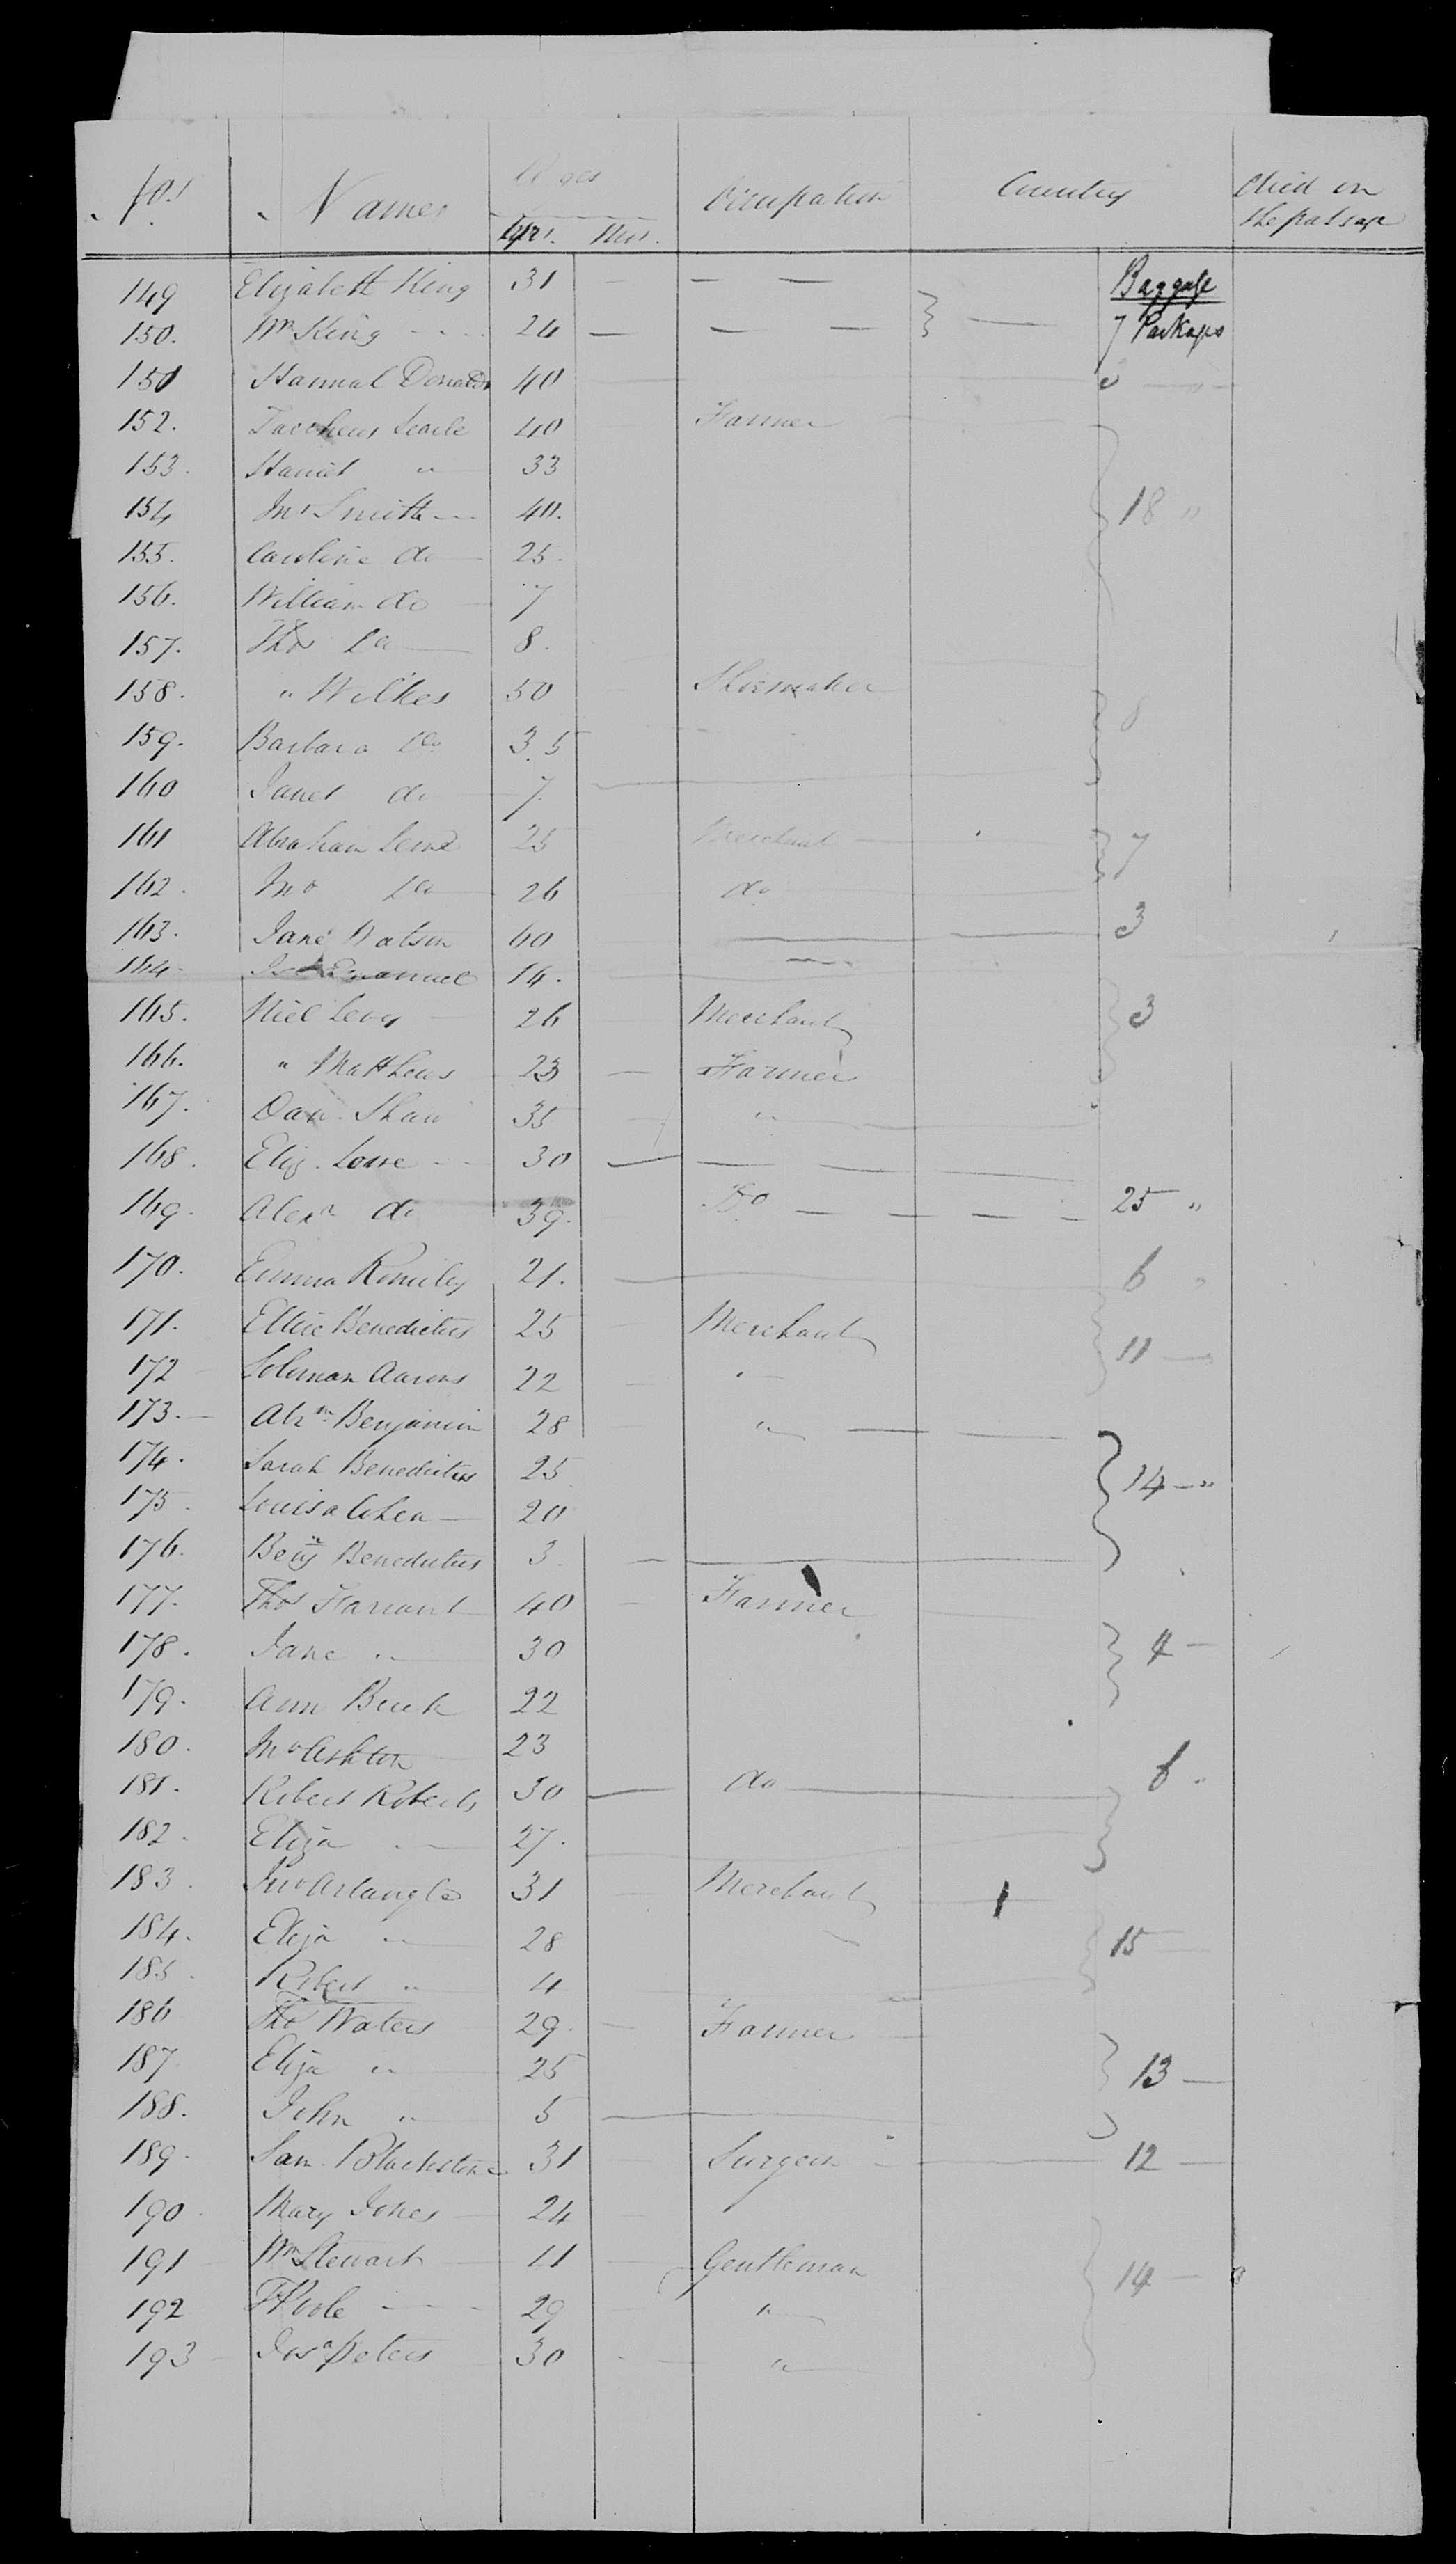 Nos Names Ages Occupation Country Died on
yrs. Mos. the passage
149 Elizabeth King 31 — — Baggage
150. Wm King 24 — — — 7 Packages
151 Hannah Donalds 40 3 "
152. Zaccheus Searle 40 Farmer
153. Harriet " 33
154 Jno Smith 40. 18 "
155. Caroline do 25.
156. William do 7
157. Thos Do 8.
158. " Wilkes 50 Shoemaker
159. Barbara Do 35 8
160 Janet do 7.
161 Abraham 25 Merchant 7
162. Jno Do 26 do
163. Jane Watson 60 3
164 Emanuel 14.
165. Levy 26 Merchant 3
166. " Matthews 23 Farmer
167. Dan. Shaw 35 "
168. Eliz. Lowe 30
169. Alexr do 39. Do 25 "
170. Emma Romiley 21. 6 "
171. Ellie Benedictus 25 Merchant
172 Soloman Aarons 22 " 11
173. Abrm Benjamin 28 "
174. Sarah Benedictus 25 14 "
175. Louisa Cohen 20
176. Benj Benedictus 3.
177. Thos Farrant 40 Farmer
178. Jane " 30 4
179. Ann Buck 22
180. Jno Ashton 23
181. Robert Roberts 30 do 6 "
182. Eliza " 27.
183. Jno 31 Merchant 1
184. Eliza " 28 15
185. Robert " 4
186 Thos Waters 29. Farmer
187 Eliza " 25 13
188. John " 5
189. Sam. Blackstone 31 Surgeon 12
190 Mary Jones 24
191 Wm Stewart 11 Gentleman 14
192 Poole 29 "
193 Josa Peters 30 "